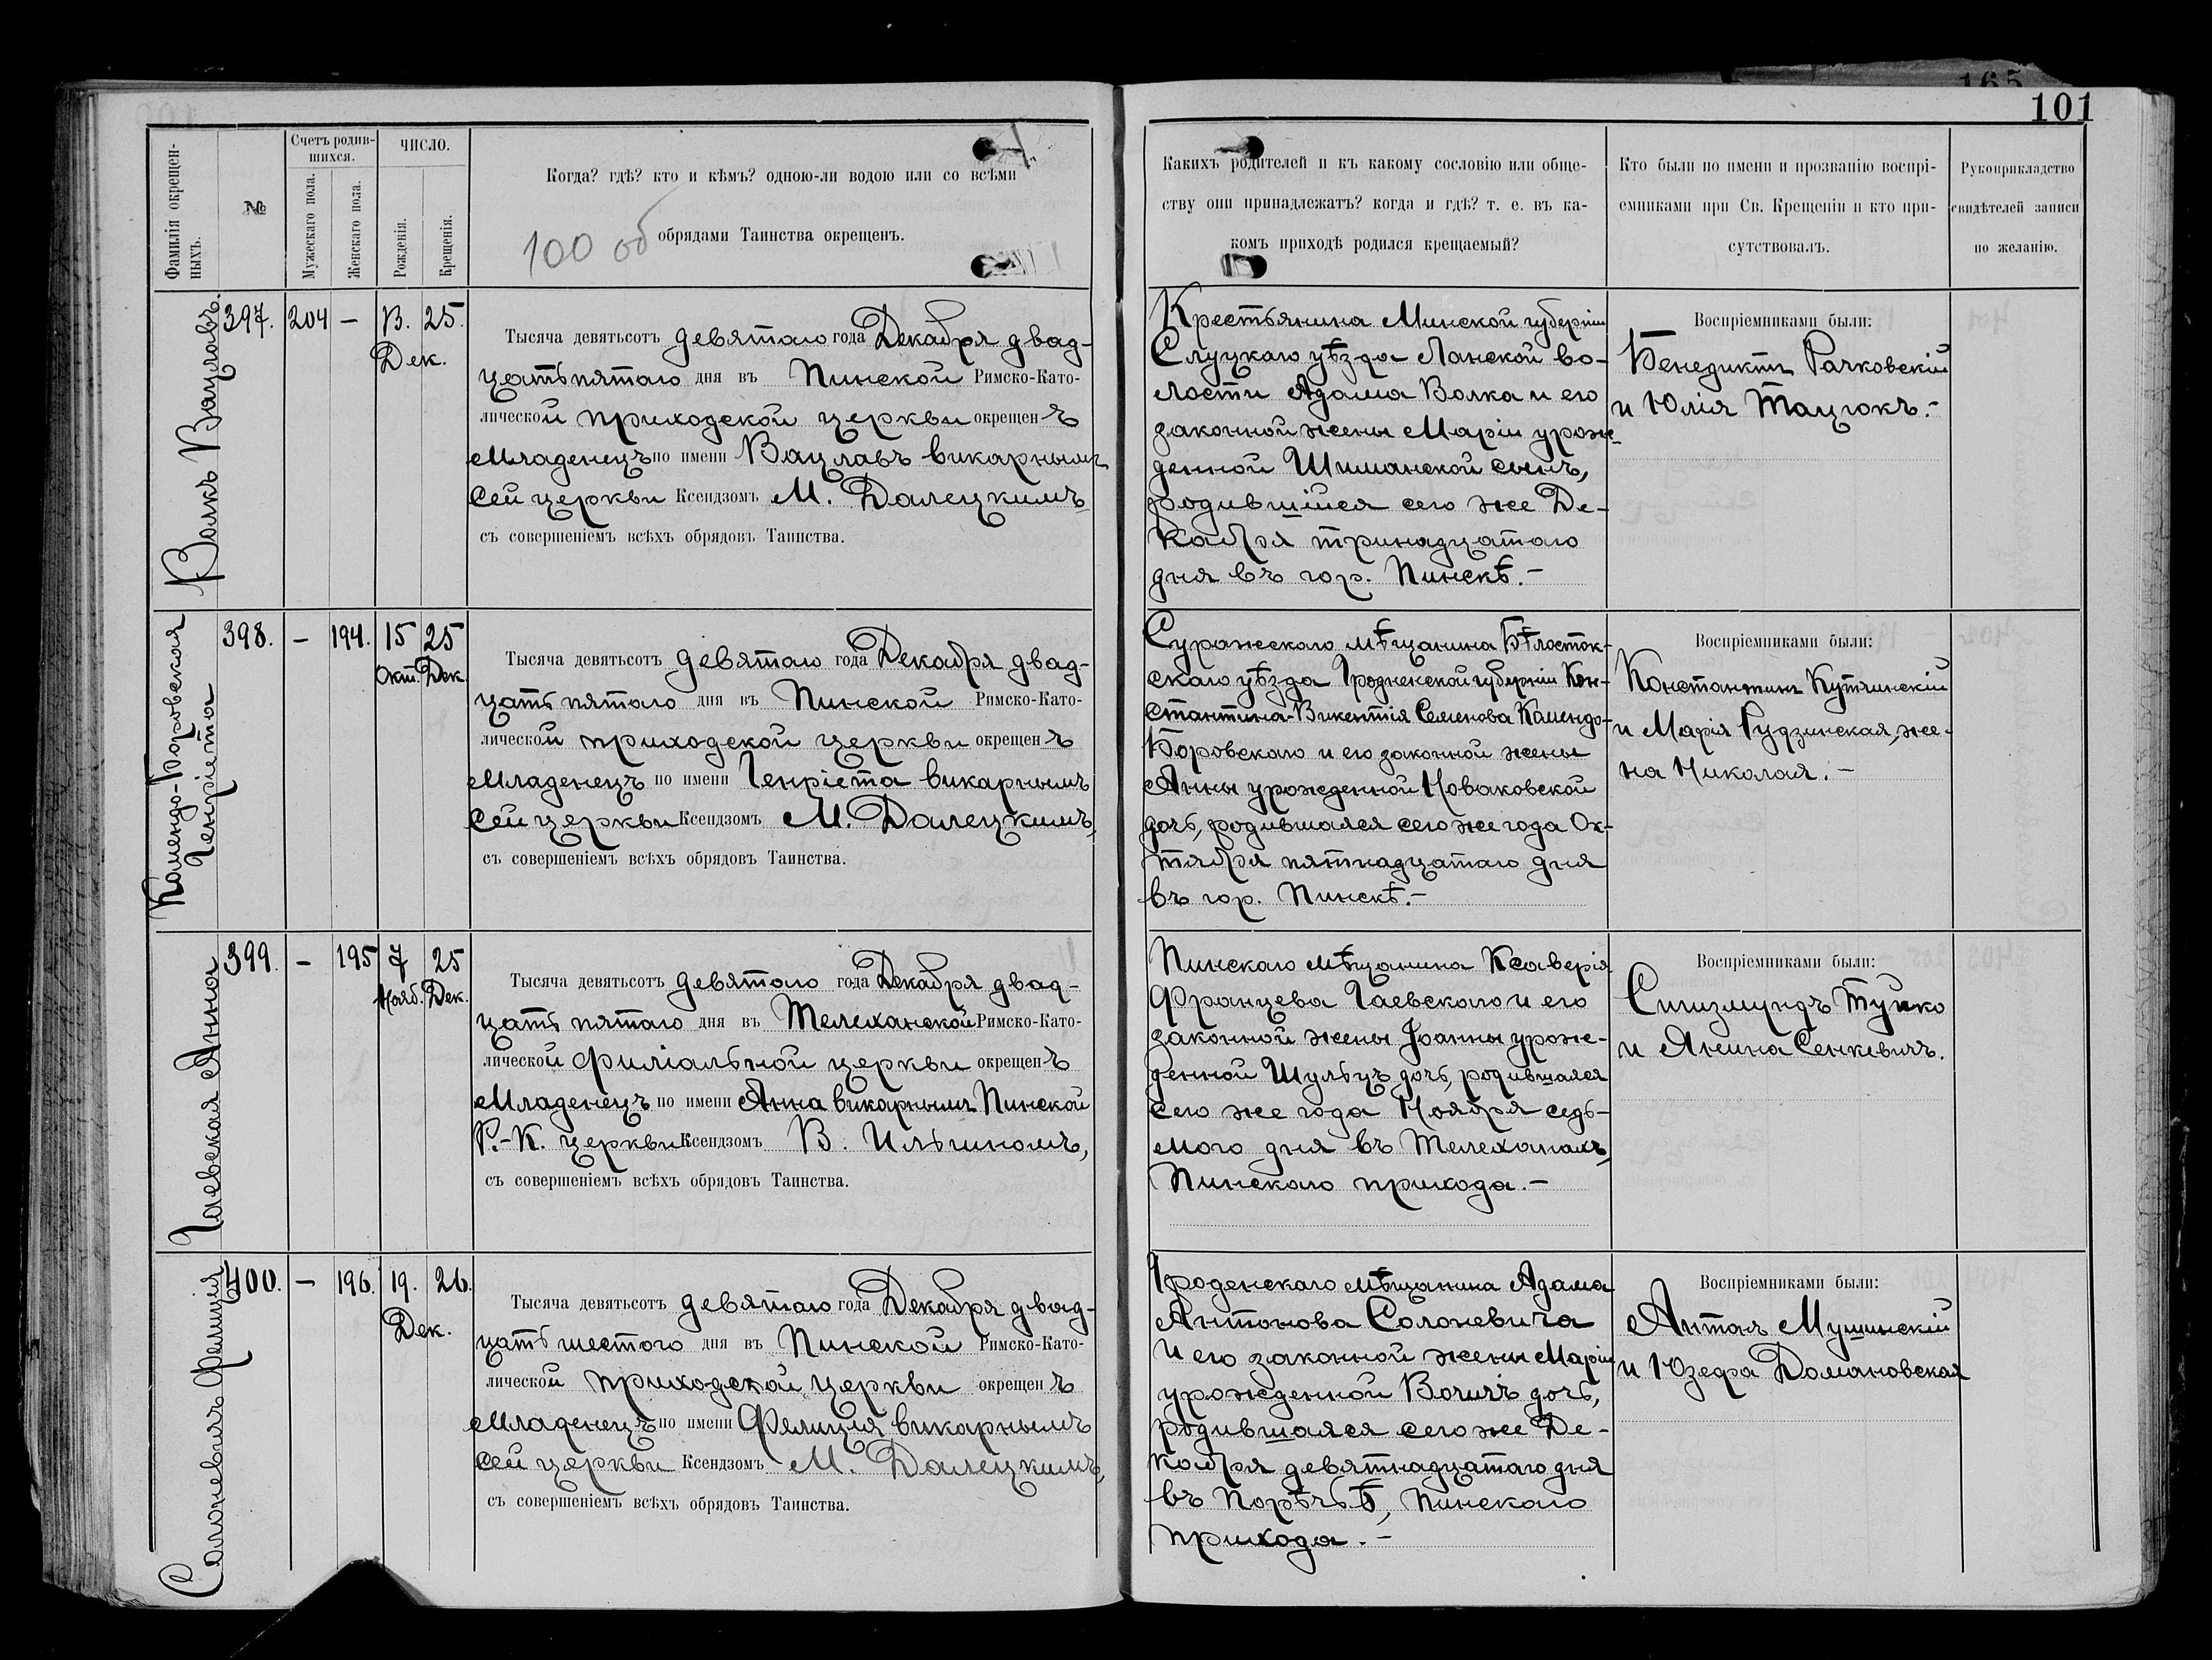 165
101
Фамилія окрещен-
ныхъ.
№
Счетъ родив-
шихся.
Мужескаго пола.
Женскаго пола.
ЧИСЛО.
Рожденія.
Крещенія.
Когда? гдѣ? кто и кѣмъ? одною-ли водою или со всѣми
обрядами Таинства окрещенъ.
100 об
Какихъ родителей и къ какому сословію или обще-
ству они принадлежатъ? когда и гдѣ? т. е. въ ка-
комъ приходѣ родился крещаемый?
Кто были по имени и прозванію воспрі-
емниками при Св. Крещеніи и кто при-
сутствовалъ.
Рукоприкладство
свидѣтелей записи
по желанію.
Волкъ Вацлавъ.
397. 204 – 13. 25.
Дек.
Тысяча девятьсотъ девятаго года Декабря двад-
цать пятаго дня въ Пинской Римско-Като-
лической приходской церкви окрещенъ
Младенецъ по имени Вацлавъ викарнымъ
сей церкви Ксендзомъ М. Далецкимъ
съ совершеніемъ всѣхъ обрядовъ Таинства.
Крестьянина Минской губерніи
Слуцкаго уѣзда Ланской во-
лости Адама Волка и его
законной жены Маріи урож-
денной Шиманской сынъ,
родившійся сего же Де-
кабря тринадцатаго
дня въ гор. Пинскѣ.–
Воспріемниками были:
Бенедиктъ Рачковскій
и Юлія Тацюкъ.–
Комендо-Боровская
Генріета
398. – 194. 15 25
Окт. Дек.
Тысяча девятьсотъ девятаго года Декабря двад-
цать пятаго дня въ Пинской Римско-Като-
лической приходской церкви окрещенъ
Младенецъ по имени Генріета викарнымъ
сей церкви Ксендзомъ М. Далецкимъ,
съ совершеніемъ всѣхъ обрядовъ Таинства.
Суражскаго мѣщанина Бѣлосток-
скаго уѣзда Гродненской губерніи Кон-
стантина-Викентія Семенова Камендо-
Боровскаго и его законной жены
Анны урожденной Новаковской
дочь, родившаяся сего же года Ок-
тября пятнадцатаго дня
въ гор. Пинскѣ.–
Воспріемниками были:
Константинъ Кутлинскій
и Марія Рудзинская, же-
на Николая.–
Гаевская Анна
399. – 195 7 25
Нояб. Дек.
Тысяча девятьсотъ девятаго года Декабря двад-
цать пятаго дня въ Телеханской Римско-Като-
лической филіальной церкви окрещенъ
Младенецъ по имени Анна викарнымъ Пинской
Р.-К. церкви Ксендзомъ В. Ильгиномъ,
съ совершеніемъ всѣхъ обрядовъ Таинства.
Пинскаго мѣщанина Ксаверія
Францева Гаевскаго и его
законной жены Іоанны урож-
денной Шульцъ дочь, родившаяся
сего же года Ноября седь-
мого дня въ Телеханахъ,
Пинскаго прихода.–
Воспріемниками были:
Сигизмундъ Тунко
и Янина Сенкевичъ.
Солоневичъ Фелиція
400. – 196. 19. 26.
Дек.
Тысяча девятьсотъ девятаго года Декабря двад-
цать шестого дня въ Пинской Римско-Като-
лической приходской церкви окрещенъ
Младенецъ по имени Фелиція викарнымъ
сей церкви Ксендзомъ М. Далецкимъ,
съ совершеніемъ всѣхъ обрядовъ Таинства.
Гроденскаго мѣщанина Адама
Антонова Солоневича
и его законной жены Маріи
урожденной Вочичъ дочь,
родившаяся сего же Де-
кабря девятнадцатаго дня
въ Порѣчьѣ, Пинскаго
прихода.–
Воспріемниками были:
Антонъ Мушинскій
и Юзефа Домановская